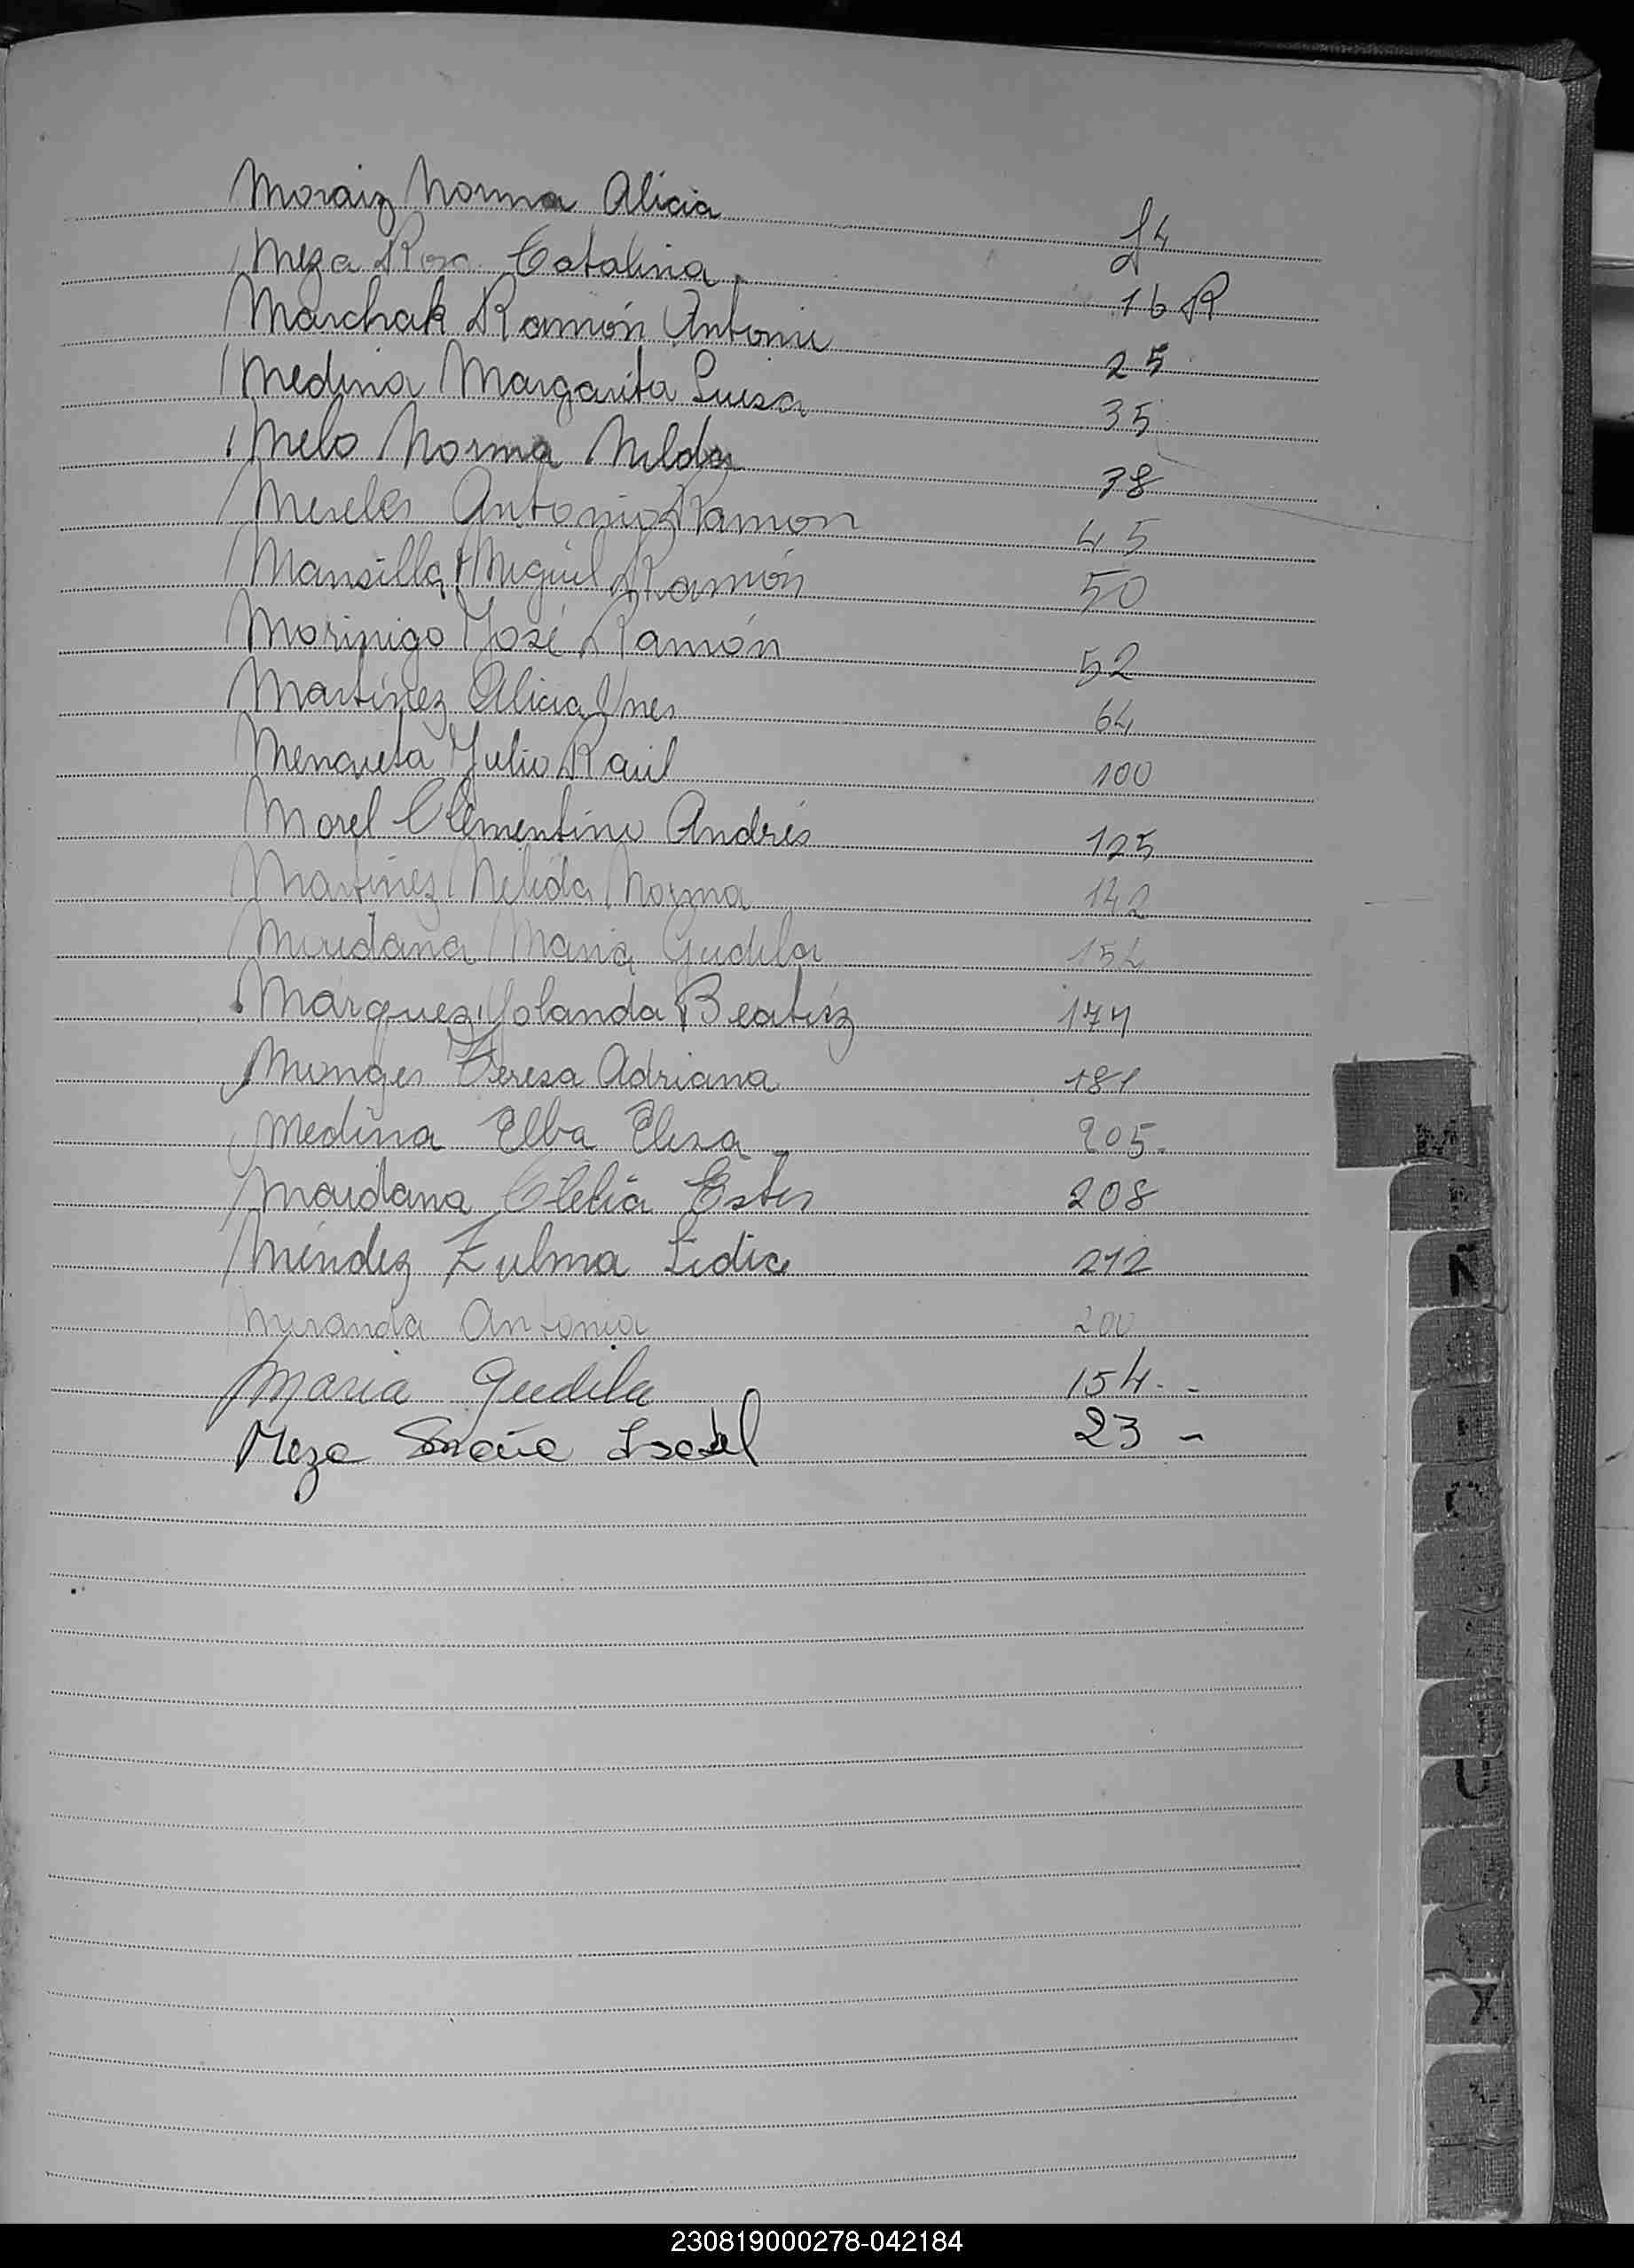 Moraiz Norma Alicia f 4
Meza Rosa Catalina 16 R
Marchak Ramón Antonio 25
Medina Margarita Luisa 35
Melo Norma Nelda 38
Mereles Antonio Ramon 45
Mansilla Miguel Ramón 50
Morinigo José Ramón 52
Martínez Alicia Ynes 64
Julio Raúl 100
Morel Clementino Andrés 125
Martinez Nelida Norma 142
Maria Gudila 154
Márquez Yolanda Beatríz 177
Monges Teresa Adriana 181
Medina Elba Elisa 205.
Maidana Clelia Ester 208
Méndez Zulma Lidia 212
Miranda Antonia 200
Maria Gudila 154. -
Meza Isabel 23 -
M
Ñ
Q
U
X
230819000278-042184